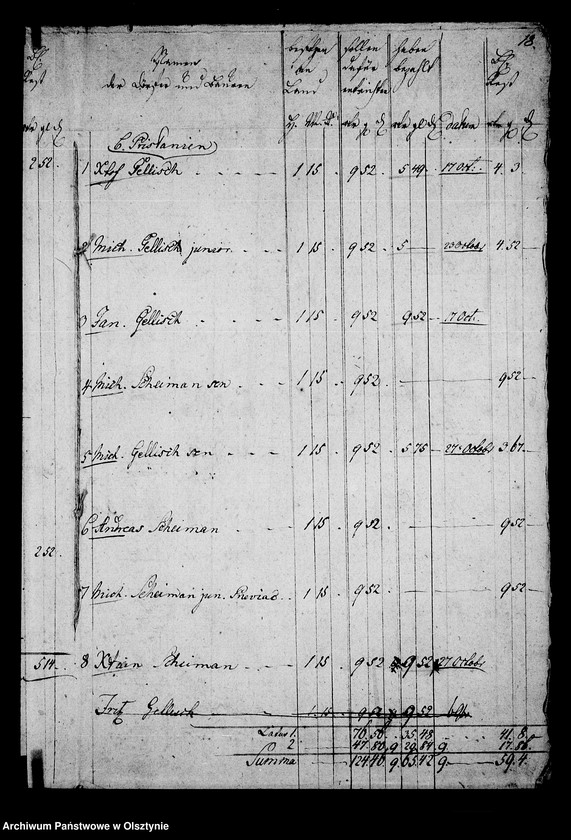 18.
Rest
Namen
der Dörfer und Bauern
besitzen
an
Land
sollen
dafür
entrichten
haben
bezahlt
Rest
H. M. R.
datum
6. Pristanien
252. 1 Xtof Gellisch - - - - 1 15 - 9 52 - 5 49 - 17 Oct. - 4. 3
2 Mich. Gellisch junior. - - 1 15 - 9 52 - 5 - 23 Octobr 4. 52
3 Jan. Gellisch - - - - 1 15 - 9 52 9 52 - 17 Oct.
4 Mich. Scheiman sen - - - 1 15 - 9 52 - 9 52
5 Mich. Gellisch sen - - - 1 15 - 9 52 - 5 75 - 27 Octobr 3. 67.
6 Andreas Scheiman - - 1 15 - 9 52 - 9 52
252.
7 Mich. Scheiman jun. 1 15 - 9 52 - 9 52
514. 8 Xtian Scheiman - - 1 15 - 9 52 9 52 27 Octobr
Fritz Gellisch 1. 15 9 52
Latus 1. 76. 56 - 35. 48 41. 8.
2 47. 80. 9 29. 84 9 17. 86.
Summa 124. 46. 9 65. 42 9 59. 4.
Archiwum Państwowe w Olsztynie